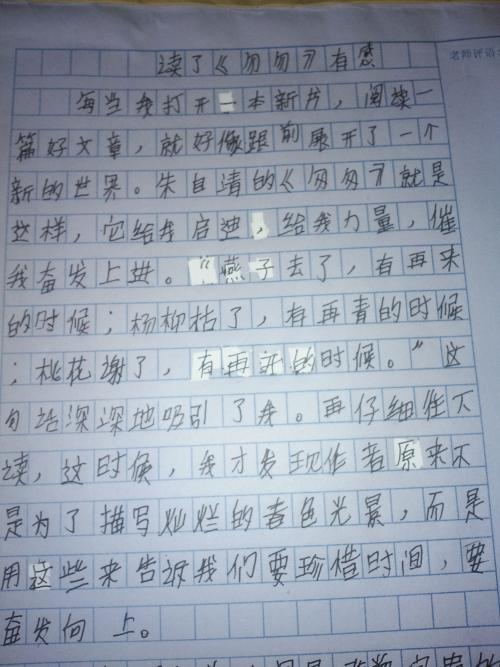 老师评语:
读了《匆匆》有感
每当我打开一本新书，阅读一
篇好文章，就好像跟前展开了一个
新的世界。朱自清的《匆匆》就是
这样，它给我启迪，给我力量，催
我奋发上进。“燕子去了，有再来
的时候；杨柳枯了，有再青的时候
；桃花谢了，有再开的时候。”这
句话深深地吸引了我。再仔细往下
读，这时候，我才发现作者原来不
是为了描写灿烂的春色光景，而是
用这些来告诉我们要珍惜时间，要
奋发向上。